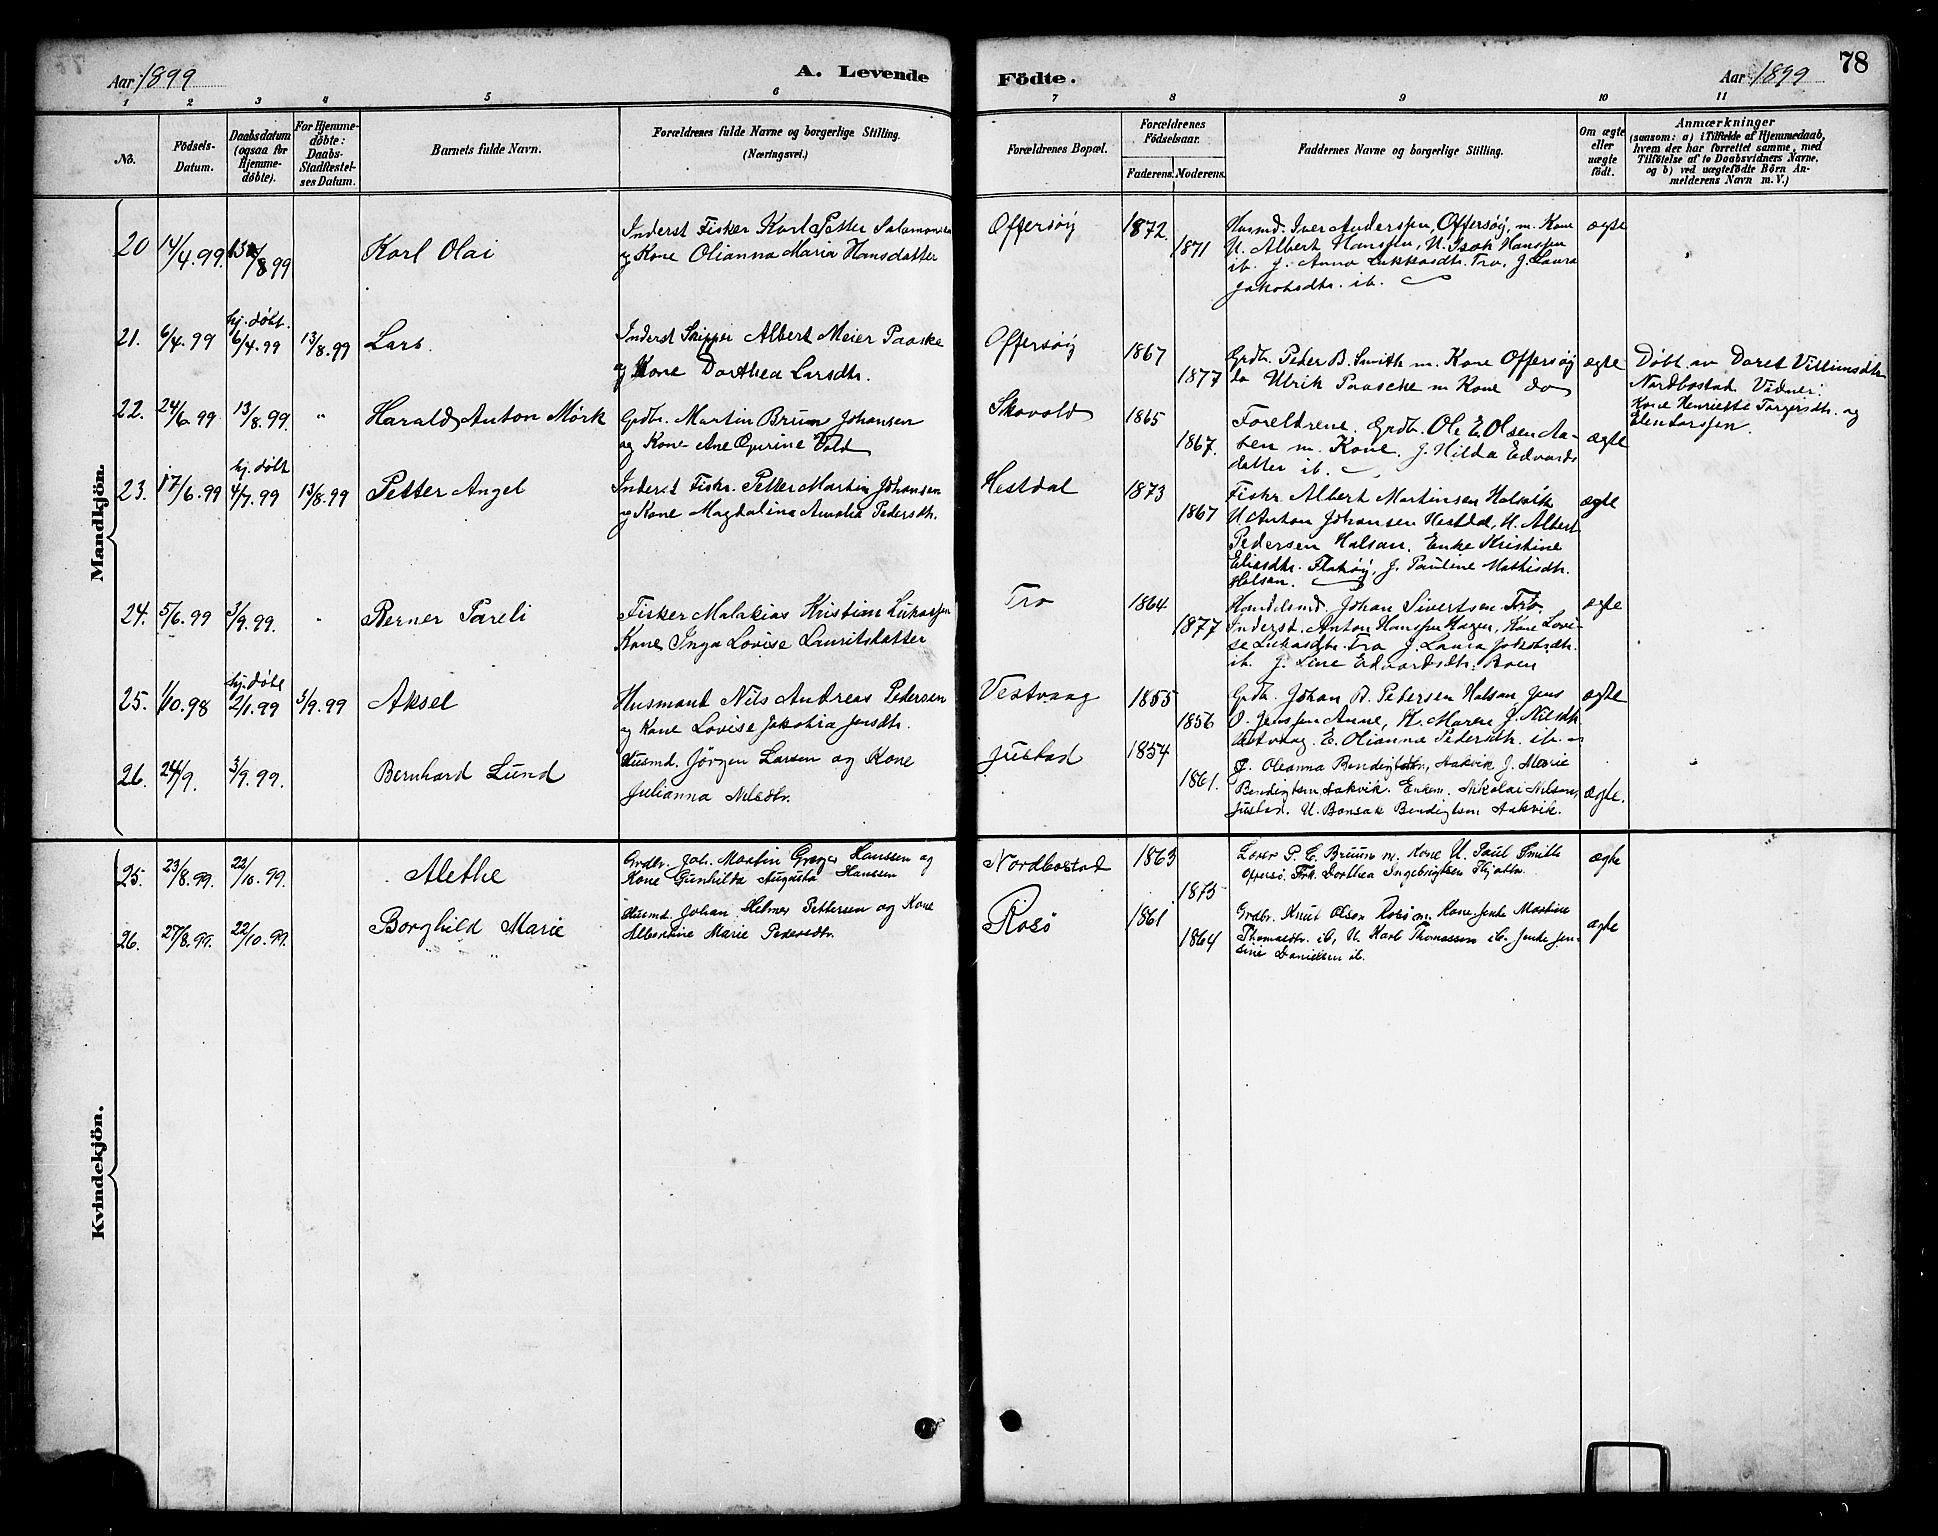 Aar 1899
A. Levende
Födte.
Aar 1899
78
1 2 3 4 5 6 7 8 9 10 11
No.
Födsels-
Datum.
Daabsdatum
(ogsaa for
Hjemme-
döbte).
For Hjemme-
döbte:
Daabs-
Stadfæstel-
ses Datum.
Barnets fulde Navn.
Forældrenes fulde Navne og borgerlige Stilling.
(Næringsvei.)
Forældrenes Bopæl.
Forældrenes
Födselsaar.
Faderens. Moderens.
Faddernes Navne og borgerlige Stilling.
Om ægte
eller
uægte
födt.
Anmærkninger
(saasom: a) i Tilfælde af Hjemmedaab,
hvem der har forrettet samme, med
Tilföielse af to Daabsvidners Navne,
og b) ved uægtefödte Börn An-
melderens Navn m. V.)
Mandkjön.
20 14/4.99. 13/8 99
Karl Olai
Inderst Fisker Karl Petter
og Kone Olianna Maria Hansdatter
Offersøy
1872
1871
Husmd. Iver Anderssen, Offersøy, m. Kone
U. Albert Hanssen, U. Isak Hanssen
ib. J. Anna Lukkasdtr. Tro, J. Laura
Jakobsdtr. ib.
ægte
21. 6/4.99 hj. døbt.
6/4.99 13/8.99
Lars.
Inderst Skipper Albert Meier Paaske
og Kone Dorthea Larsdtr.
Offersøy
1867
1877
Grdb. Peder B. Smith m. Kone Offersøy
do Ulrik Paasche m Kone do
ægte
Døbt av Doret Villumsdtr
Nordbostad Vidner
Kone Henriette Torgersdtr. og
22. 24/6.99 13/8.99. "
Harald Anton Mørk
Grdbr. Martin Bruun Johansen
og Kone Ane Vold
Skovold
1865
1867.
Foreldrene. Grdb. Ole E. Olsen Aa-
sen m. Kone. J. Hilda Edvards
datter ib.
ægte
23. 17/6.99 hj. døbt
4/7.99 13/8.99
Petter Angel
Inderst Fiskr. Petter Martin Johansen
og Kone Magdalina Amalia Pedersdtr.
Hestdal
1873
1867
Fiskr Albert Martinsen Halvik
U. Anton Johansen Hestdal, U. Albert
Pedersen Halsan. Enke Kristine
Eliasdtr. Flatøy, J. Pauline Mathisdtr.
Halsan.
ægte
24. 5/6.99 3/9.99.
Rerner Pareli
Fisker Malakias Kristian Lukassen
Kone Inga Lovise Lauritsdatter
Tro
1864
1877
Handelsmd. Johan Sivertsen Tro.
Inderst. Anton Hanssen Hagen, Kone Lovi-
se Lukasdtr. Tro J. Laura Jakobsdtr.
ib. J. Line Edvardsdtr. Boen
ægte
25. 1/10.98 hj. døbt
2/1.99 3/9.99
Aksel
Husmand Nils Andreas Pedersen
og Kone Lovise Jakobia Jensdtr.
Vestvaag
1855
1856
Grdb. Johan B. Pedersen Halsan Jens
O. Jenssen Anne, K. Maren J. Nilsdtr
Vestvaag. E. Olianna Pedersdtr. ib.
ægte
26. 24/9. 3/9.99.
Bernhard Lund
Husmd. Jörgen Larsen og Kone
Julianna Nilsdtr.
Justad
1854
1861.
J. Oleanna Bendigtsdtr, Aakvik J. Marie
Bendigtsen Aakvik. Enkem. Nikolai Nilsen,
Justad. U. Bonsak Bendigtsen Aakvik.
ægte.
Kvindekjön.
25. 23/8.99. 22/10.99.
Alethe
Grdbr. Joh. Martin Hanssen og
Kone Gunhilda Augusta Hanssen
Nordbostad
1863
1875
P. C. Bruun m. Kone U. Paul Smith
Offersö. Frk. Dorthea Ingebrigtsen
ægte
26. 27/8.99. 22/10.99.
Borghild Marie
Husmd. Johan Helmer Pettersen og Kone
Albertine Marie Pedersdtr.
Rosö
1861
1864
Grdbr. Knut Olsen Rosö m. Kone Jente Martine
Thomasdtr. ib, U. Karl Thomassen ib. Jente Jen-
sine Danielsen ib.
ægte